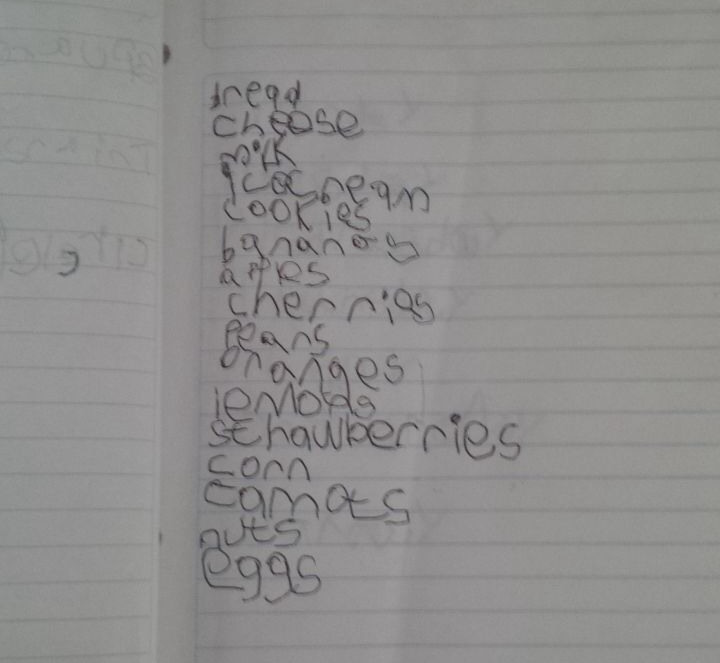 bread
cheese
milk
icecream
cookies
bananas
apples
cherries
pears
oranges
lemons
strawberries
corn
carrots
nuts
eggs
circle